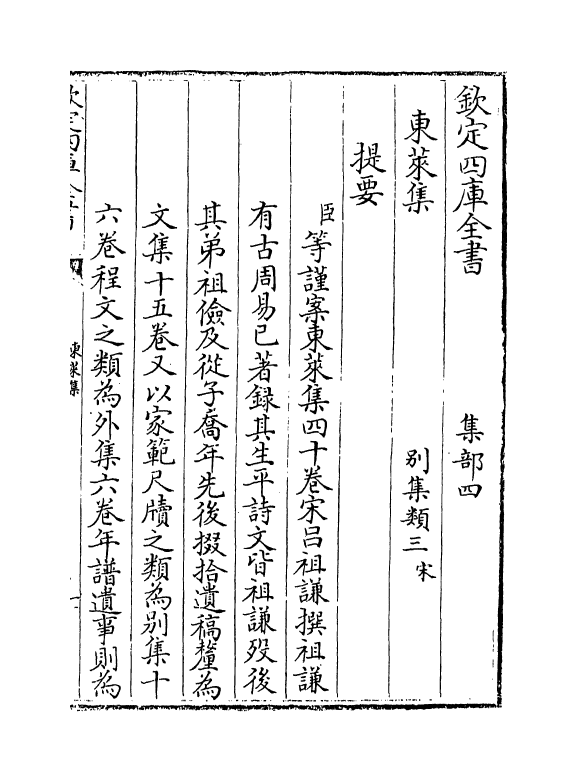 欽定四庫全書　集部四
東萊集　別集類三宋
提要
臣等謹案東萊集四十卷宋呂祖謙撰祖謙
有古周易已著録其生平詩文皆祖謙歿後
其弟祖儉及從子喬年先後掇拾遺稿釐為
文集十五卷又以家範尺牘之類為別集十
六卷程文之類為外集六卷年譜遺事則為
東萊集